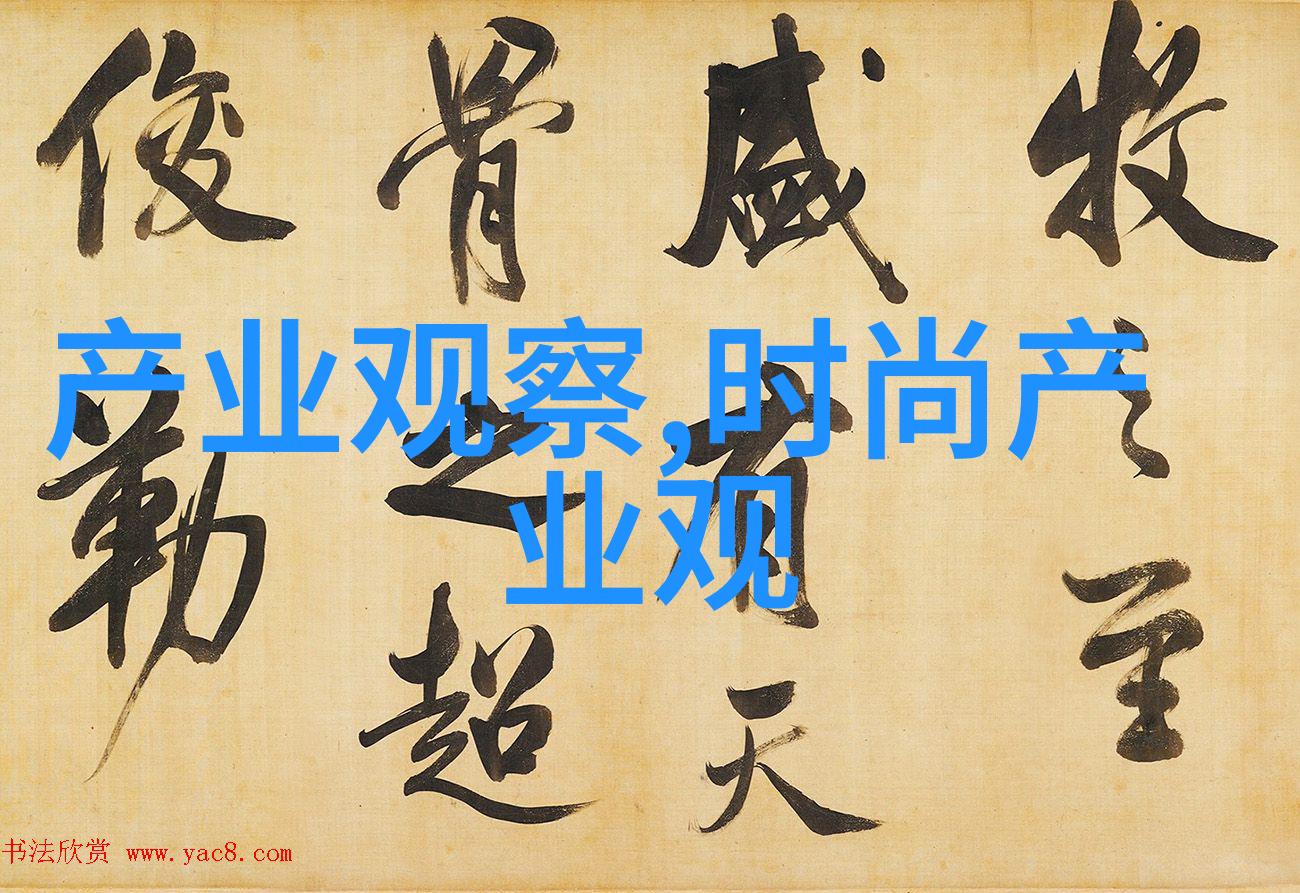 牧之至
盛有天
骨之超
俊勒
产业观察,时尚产
业观
书法欣赏 www.yac8.com